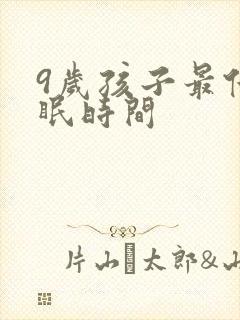 9歲孩子最
眠時間
片山 太郎&